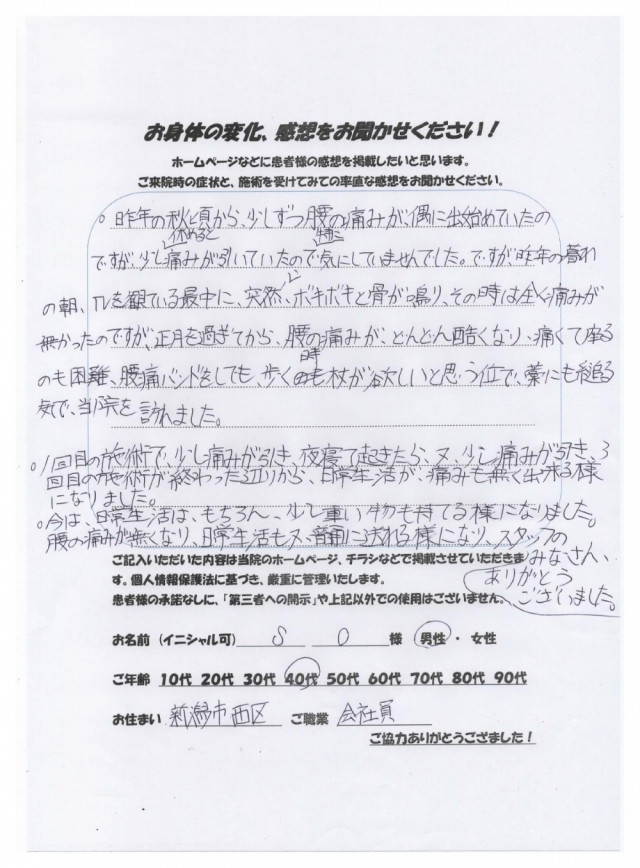 お身体の変化、感想をお聞かせください！
ホームページなどに患者様の感想を掲載したいと思います。
ご来院時の症状と、施術を受けてみての率直な感想をお聞かせください。
○ 昨年の秋頃から、少しずつ腰の痛みが偶に出始めていたの
休めると 特に
ですが、少し痛みが引いていたので気にしていませんでした。ですが昨年の暮れ
の朝、TVを観ている最中に、突然、ボキボキと骨が鳴り、その時は全く痛みが
無かったのですが、正月を過ぎてから、腰の痛みが、どんどん酷くなり、痛くて座る
時
のも困難、腰痛バンドをしても、歩くのも杖が欲しいと思う位で、藁にも縋る
気で、当院を訪れました。
○1回目の施術で、少し痛みが引き、夜寝て起きたら、又、少し痛みが引き、3
回目の施術が終わった辺りから、日常生活が、痛みも無く出来る様
になりました。
○今は、日常生活は、もちろん、少し重い物も持てる様になりました。
腰の痛みが無くなり、日常生活も又、普通に送れる様になり、スタッフの
みなさん、
ありがとう
ございました。
ご記入いただいた内容は当院のホームページ、チラシなどで掲載させていただきま
す。個人情報保護法に基づき、厳重に管理いたします。
患者様の承諾なしに、「第三者への開示」や上記以外での使用はございません。
お名前（イニシャル可） S O 様 男性 ・ 女性
ご年齢 10代 20代 30代 40代 50代 60代 70代 80代 90代
お住まい 新潟市西区 ご職業 会社員
ご協力ありがとうござました！